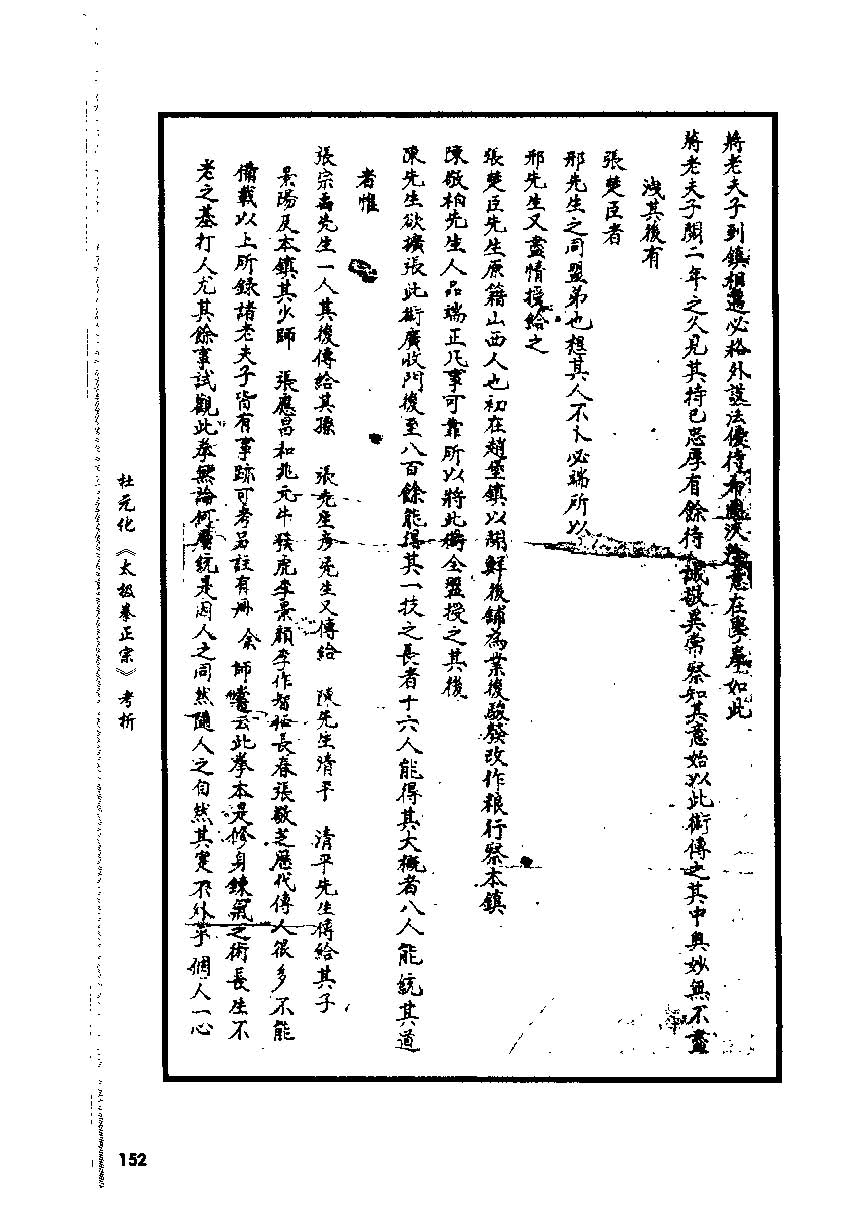 將老夫子到鎮相遇必格外設法優待希圖浹洽意在學拳如此
蔣老夫子閱二年之久見其持己忠厚有餘待人誠敬異常察知其意始以此術傳之其中奧妙無不盡
洩其後有
張楚臣者
邢先生之同盟弟也想其人不卜必端所以
邢先生又盡情授給之
張楚臣先生原籍山西人也初在趙堡鎮以開鮮後鋪為業後駿發改作粮行察本鎮
陳敬柏先生人品端正凡事可靠所以將此術全盟授之其後
陳先生欲擴張此術廣收門後至八百餘能得其一技之長者十六人能得其大概者八人能統其道
者惟
張宗禹先生一人其後傳給其孫 張先生彥先生又傳給 陳先生清平 清平先生傳給其子
景陽及本鎮其少師 張應昌和兆元牛發虎李景顏李作智 長春張敬芝歷代傳人很多不能
備載以上所錄諸老夫子皆有事跡可考另註有冊 余師 云此拳本是修身鍊氣之術長生不
老之基打人尤其餘事試觀此拳無論何層統是因人之同然隨人之自然其實不外乎個人一心
杜元化《太极拳正宗》考析
152